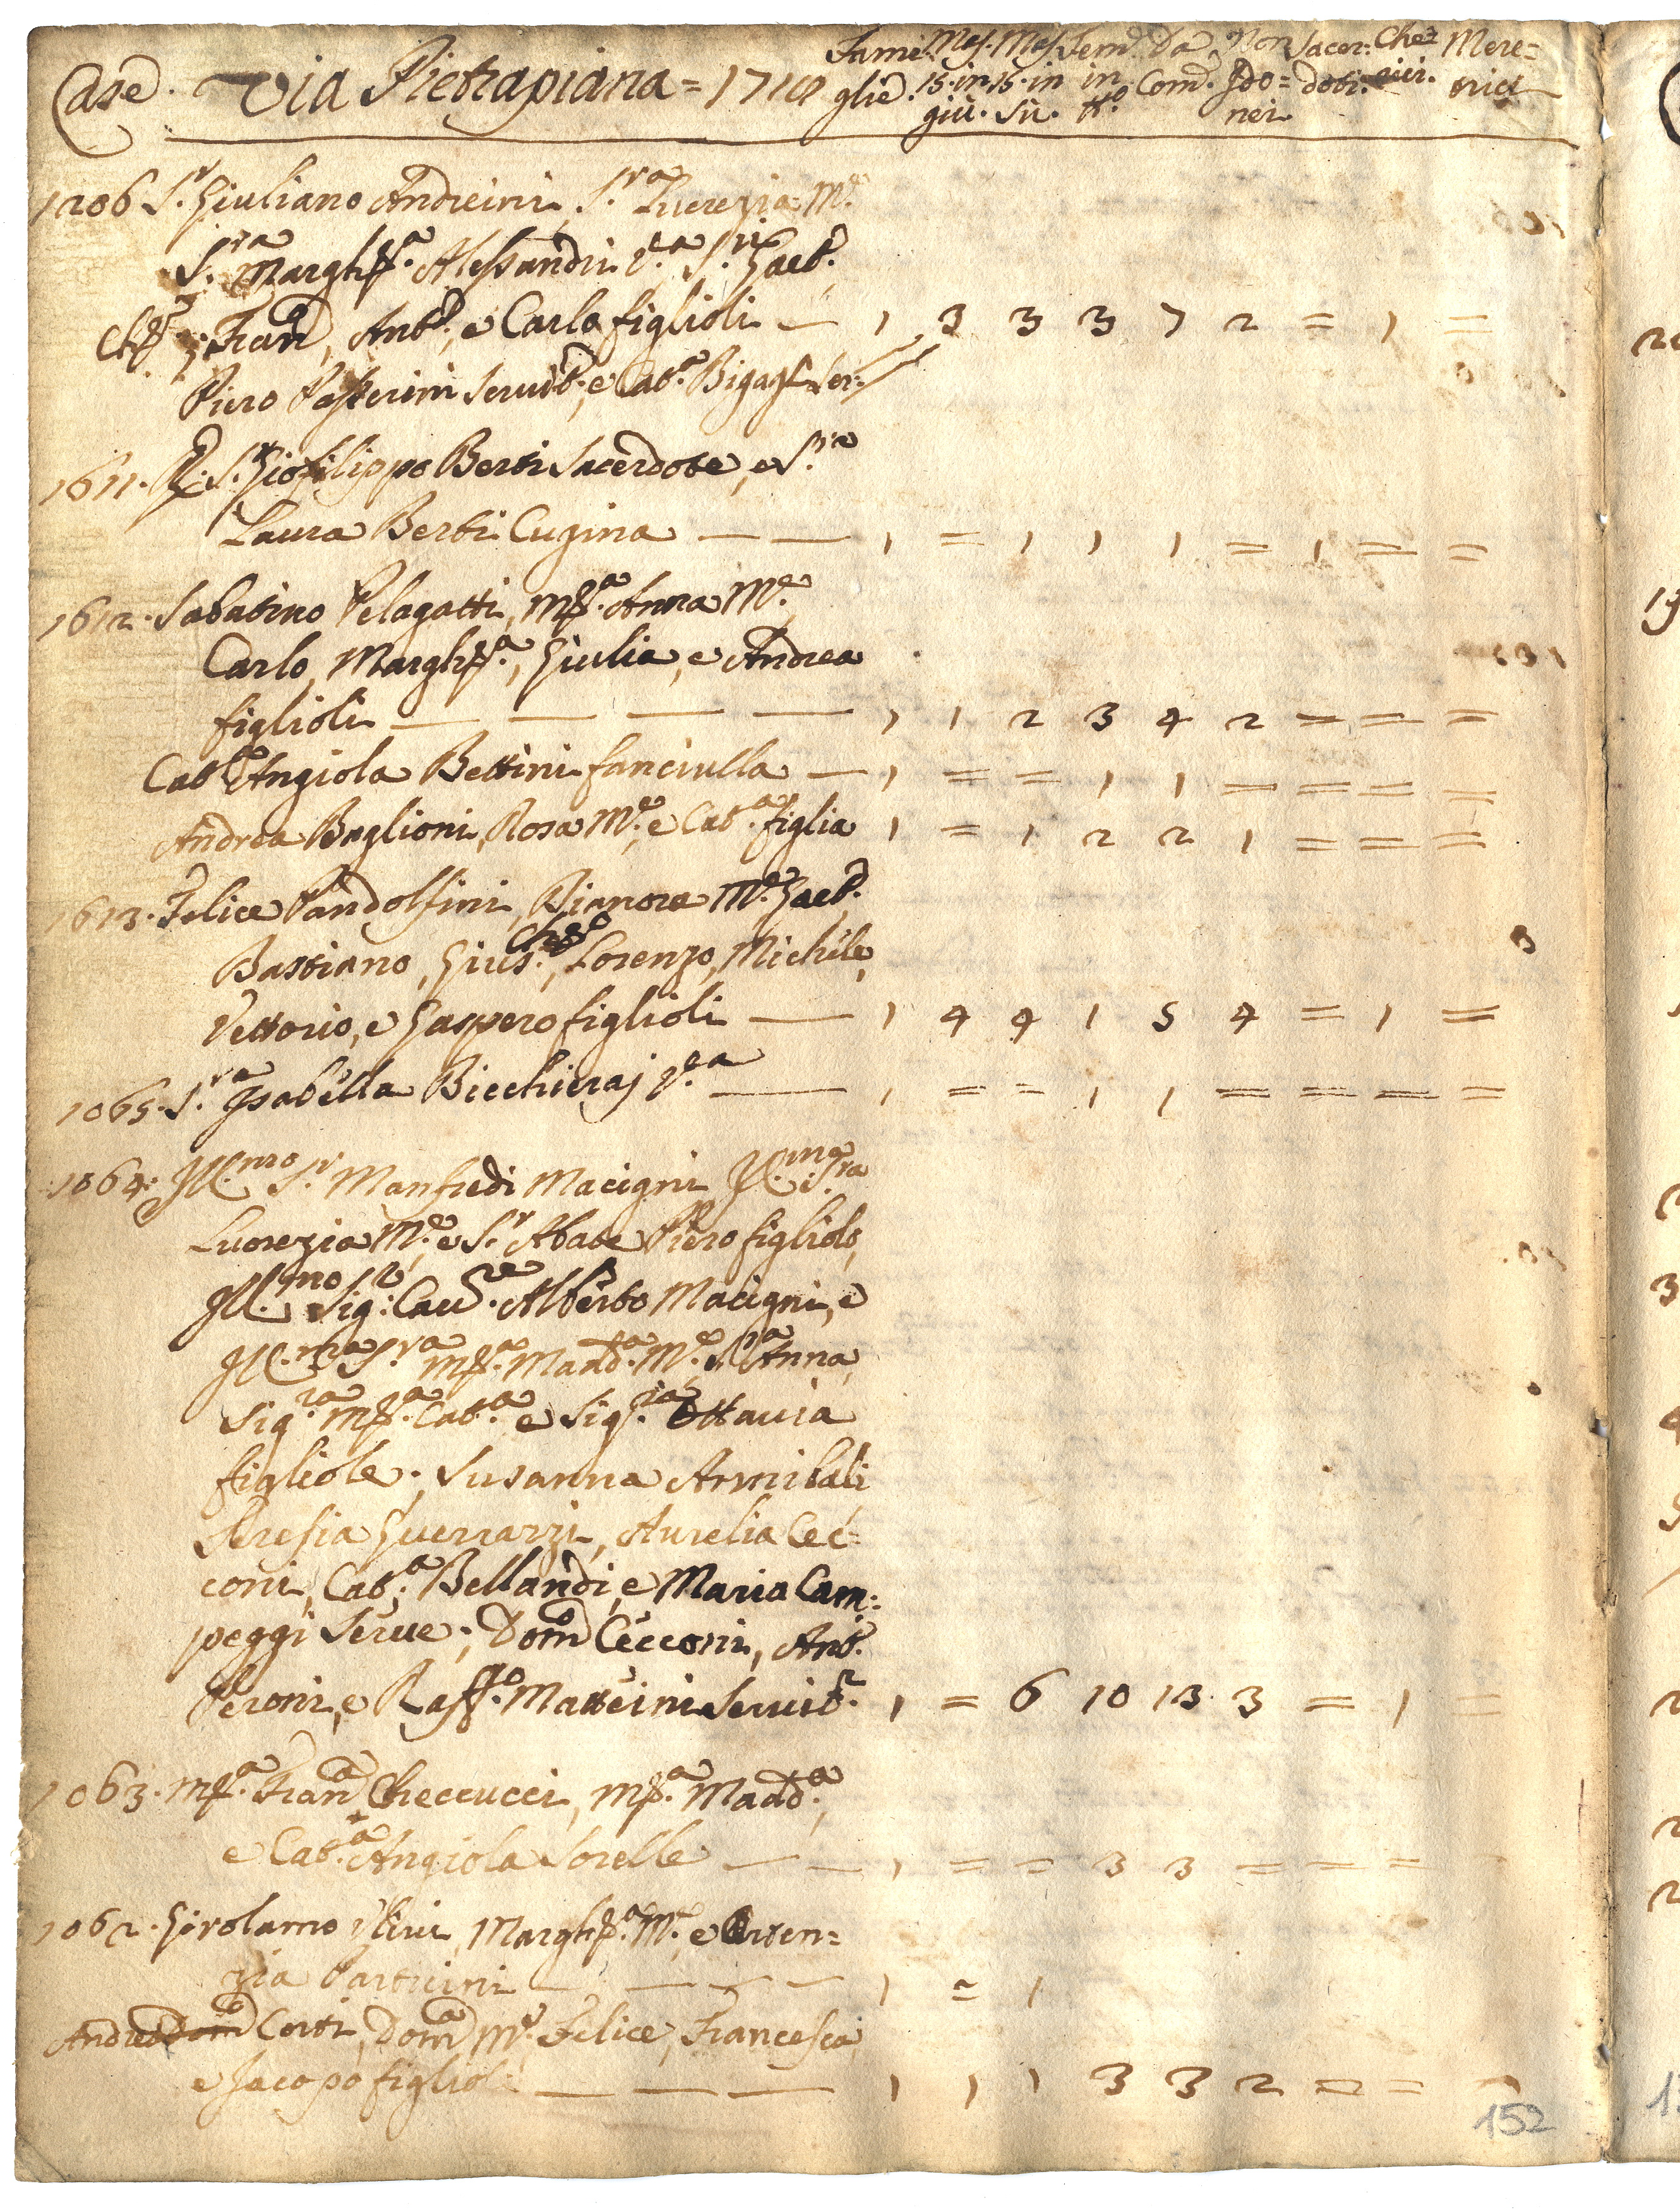 Case. Via Pietrapiana = 1710 Fami: Mas. Mas. Fem. Da Non Sacer: Che= Mere=
glie. 15. in 15. in in Com. Ido= doti. rici. trici
giù. Sù. tt.o nei.
1206 S.r Giuliano Andreini, S.ra Lucrezia M.e
S.ra Margh.a Alessandri V.a S.ri Gaet.o
Ch.o Fran.o, Ant.o, e Carlo figlioli — 1 3 3 3 7 2 = 1 =
Piero Passerini Servit.e, e Cat.a Bigagli Ser:
1611. R. S.r Gio: filippo Berti Sacerdote, e S.ra
Laura Berti Cugina — — 1 = 1 1 1 = 1 = =
1612. Sabatino Pelagatti, M.a Anna M.e
Carlo, Margh.a, Giulia, e Andrea
figlioli — — — — 1 1 2 3 4 2 = = =
Cat.a Angiola Bettini fanciulla — 1 = = 1 1 = = = =
Andrea Baglioni, Rosa M.e, e Cat.a figlia 1 = 1 2 2 1 = = =
1613. Felice Pandolfini, Dianora M.e Gaet.o
Bastiano, Gius.e Ch.o, Lorenzo, Michele,
Vettorio, e Gaspero figlioli — 1 4 4 1 5 4 = 1 =
1065. S.ra Isabella Bicchieraj V.a — 1 = = 1 1 = = = =
1064. Ill.mo S.r Manfredi Macigni, Ill.ma S.ra
Lucrezia M.e, e S.r Abate Piero figliolo,
Ill.mo Sig.r Cav.re Alberto Macigni, e
Ill.ma S.ra M.a Madd.a M.e, e S.ra Anna,
Sig.ra M.a Cat.a e Sig.ra Ottavia
figliole. Susanna Armilali
Teresia Guerrazzi, Aurelia Cec=
coni, Cat.a Bellandi, e Maria Cam=
peggi Serve. Dom.o Cecconi, Ant.o
Peroni, e Raff.o Matteini Servit.i 1 = 6 10 13 3 = 1 =
1063. M.a Fran.a Checcucci, M.a Madd.a,
e Cat.a Angiola Sorelle — — 1 = = 3 3 = = =
1062. Girolamo Ulivi, Margh.a M.e, e Orten=
zia Partiini — — — — 1 = 1
Andrea Dom.o Corsi, Dom.a M.e Felice, Francesca
e Jacopo figlioli — — — 1 1 1 3 3 2 = =
152